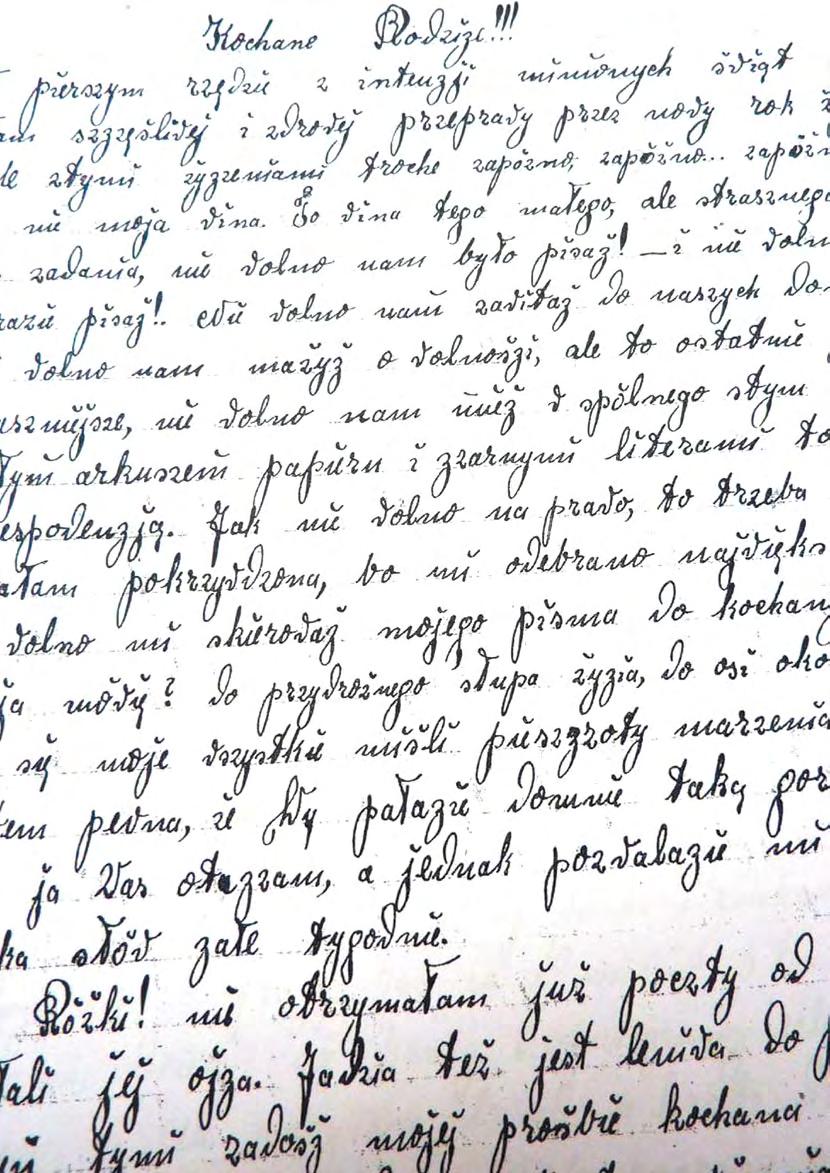 Kochane Rodzize!!!
pierszym rzędzie z intenzji minionych śdiąt
am szzęślidej i zdrodej przeprady przez nody rok ż
le ztymi żyzzeniami troche zapózno, zapóżno... zapóżn
nie moja dina. To dina tego małego, ale strasznego
zadania, nie dolno nam było pisaż! — i nie doln
razu pisaż!. Nie dolno nam zaditaż do naszych do
dolno nam mażyż o dolnośzi, ale to ostatnie
aszniejsze, nie dolno nam mież d spólnego stym
łym arkuszem papieru i zzarnymi literami to
espodenzją. Jak nie dolno na prado, to trzeba
ałam pokrzyddzona, bo mi odebrano najdięks
dolno mi skierodaż mojego pisma do kochany
ja módię? do przydrożnego słupa żyzia, do osi oko
się moje dszystkie miśli pieszzoty marzenia
em pedna, że Wy pałazie domnie taką por
ja Was otazzam, a jednak pozdalazie mi
ka słód załe tygodnie.
Różki! nie otrzymałam już poczty od
łali jej ojza. Jadzia też jest lenida do p
tymi zadośż mojej prośbie kochana